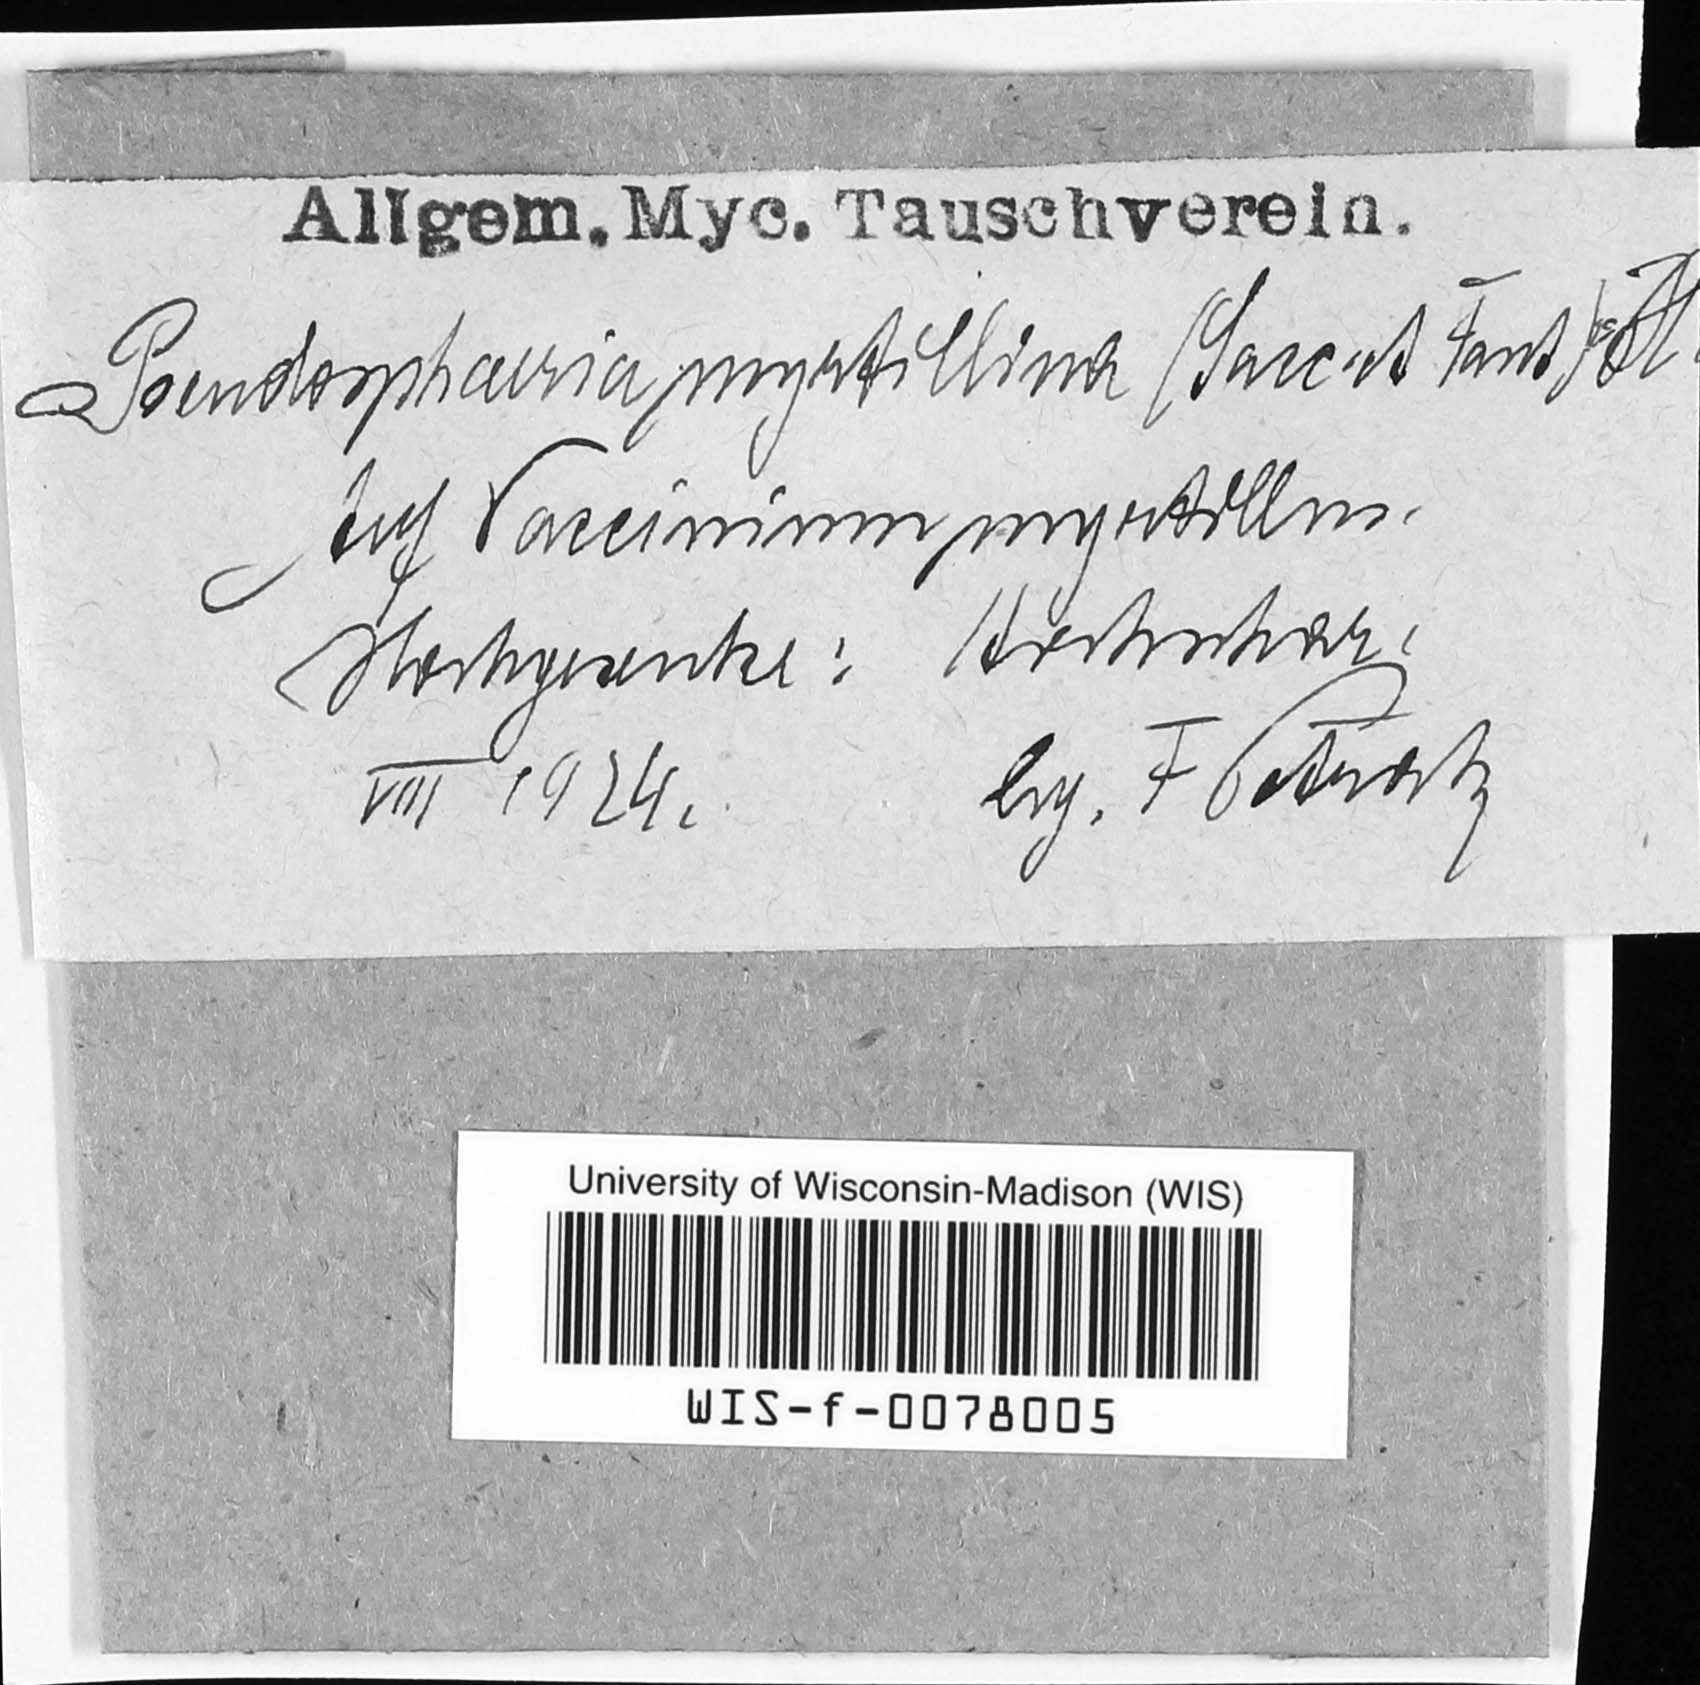 Allgem. Myc. Tauschverein.
Pseudosphaeria myrtillina (Sacc. et Faut)
Auf Vaccinium myrtillus.
Hochgesenke: Hochschar.
VIII 1924. lg. F Petrak
University of Wisconsin-Madison (WIS)
WIS-f-0078005